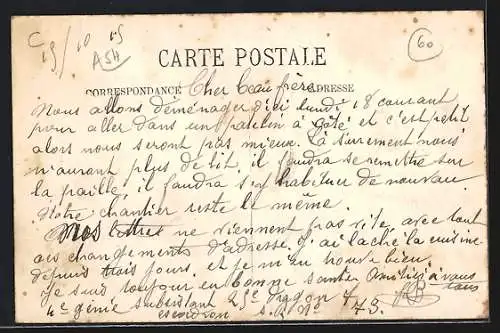 C
19/10 15
ASH
60
CARTE POSTALE
CORRESPONDANCE Cher beau frère ADRESSE
Nous allons déménager d'ici lundi 18 courant
pour aller dans un patelin à côté et c'est petit
alors nous seront pas mieux. Là surement nous
n'aurant plus de lit, il faudra se remettre sur
la paille, il faudra s'y habituer de nouveau.
Notre chantier reste le même.
Mos lettres ne viennent pas vite, avec tout
ces changements d'adresse. J'ai laché la cuisine
depuis trois jours, et je m'en trouve bien.
Je suis toujour en bonne santée Amitiés à vous tous
4e génie subsistant 25e Dragon
escadron S.P. No 73.